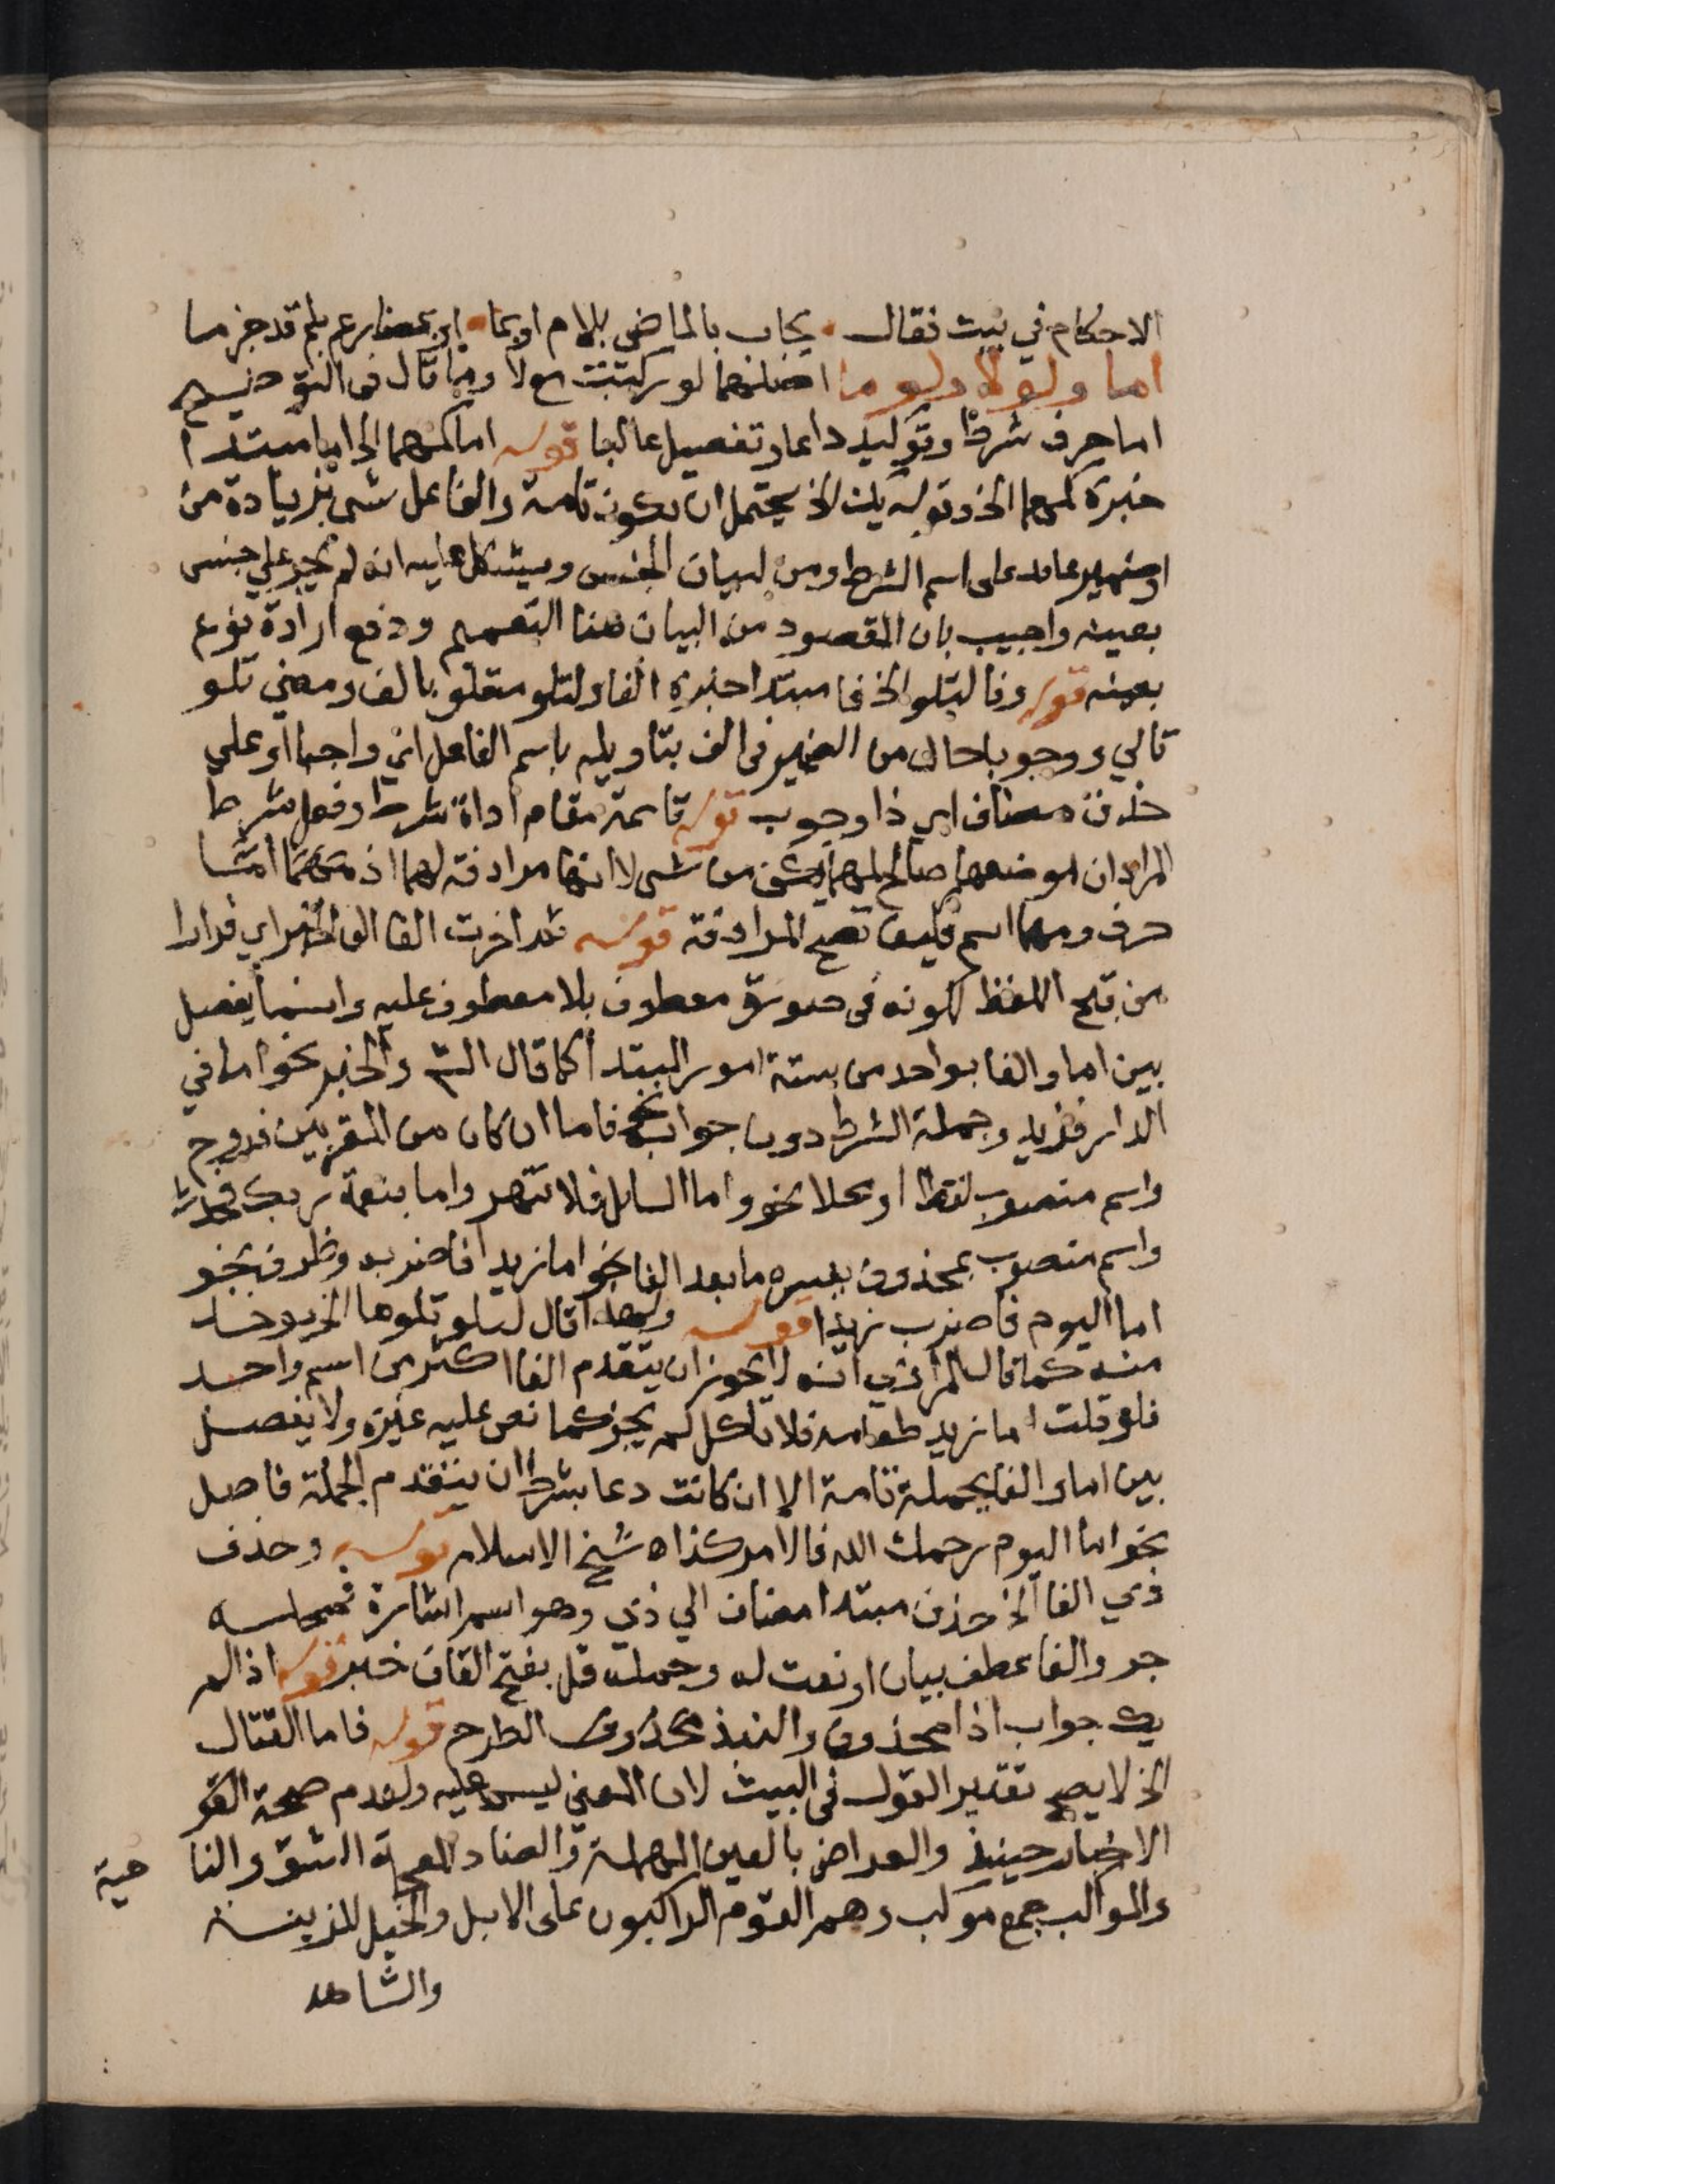 الاحكام في بيت فقال يجاب بالماضي بلام او بما او بمضارع بلم قد جزما
اما ولولا ولوما اصلهما لو ركبت مع لا وما قال في التوضيح
اما حرف شرط وتوكيد دايما وتفصيل غالبا قوله اما كمهما الخ اما مبتدا
خبره كمهما الخ وقوله يك الخ يحتمل ان يكون تامة والفاعل شي بزيادة من
او ضمير عايد على اسم الشرط ومن لبيان الجنس ويشكل عليه انه لم يجر على جنس
بعينه واجيب بان المقصود من البيان هنا التعميم ودفع ارادة نوع
بعينه قوله وفا لتلو الخ فا مبتدا خبره الفا ولتلو متعلق بالف ومعنى تلو
تالي ووجوبا حال من الضمير في الف بتاويله باسم الفاعل اي واجبا او على
حذف مضاف اي ذا وجوب قوله قايمة مقام اداة شرط وفعل شرط
المراد ان موضعها صالح لمهما يكن من شي لا انها مرادفة لهما اذ
حرف ومهما اسم فكيف تصح المرادفة قوله ثم اخرت الفا الى الخبر اي فرارا
من قبح اللفظ لكونه في صورة معطوف بلا معطوف عليه وانما يفصل
بين اما والفا بواحد من ستة امور المبتدا كما قال الش والخبر نحو اما في
الدار فزيد وجملة الشرط دون جوابه نحو فاما ان كان من المقربين فروح
واسم منصوب لفظا او محلا نحو واما السايل فلا تنهر واما بنعمة ربك فحدث
واسم منصوب بمحذوف يفسره ما بعد الفا نحو اما زيدا فاضربه وظرف نحو
اما اليوم فاضرب زيدا قوله ولهذا قال لتلو تلوها الخ يوخذ
منه كما قال المرادي انه لا يجوز ان يتقدم الفا اكثر من اسم واحد
فلو قلت اما زيد طعامه فلا تاكل لم يجز كما نص عليه غيره ولا يفصل
بين اما والفا بجملة تامة الا ان كانت دعا بشرط ان يتقدم الجملة فاصل
نحو اما اليوم رحمك الله فالامر كذا اه شيخ الاسلام قوله وحذف
ذي الفا الخ حذف مبتدا مضاف الى ذي وهو اسم اشارة فمحله
جر والفا عطف بيان او نعت له وجملة قل بفتح القاف خبر قوله اذا لم
يك جواب اذا محذوف والنبذ الطرح قوله فاما القتال
الخ لا يصح تقدير القول في البيت لان المعنى ليس عليه ولعدم صحة القو
الاخبار حينيذ والعراض بالعين المهملة والضاد المعجمة الشق والنا
حية
والمواكب جمع موكب وهم القوم الراكبون على الابل والخيل للزينة
والشاهد